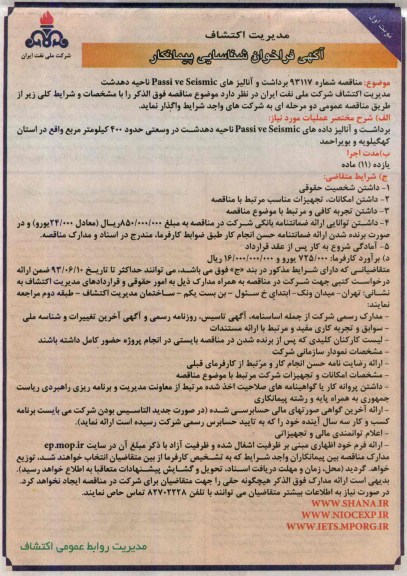 نوبت اول
مدیریت اکتشاف
شرکت ملی نفت ایران
آگهی فراخوان شناسایی پیمانکار
موضوع: مناقصه شماره ۹۳۱۱۷ برداشت و آنالیز های Passi ve Seismic ناحیه دهدشت
مدیریت اکتشاف شرکت ملی نفت ایران در نظر دارد موضوع مناقصه فوق الذکر را با مشخصات و شرایط کلی زیر از
طریق مناقصه عمومی دو مرحله ای به شرکت های واجد شرایط واگذار نماید.
الف) شرح مختصر عملیات مورد نیاز:
برداشت و آنالیز داده های Passi ve Seismic ناحیه دهدشت در وسعتی حدود ۴۰۰ کیلومتر مربع واقع در استان
کهگیلویه و بویراحمد
ب)مدت اجرا
یازده (۱۱) ماه
ج) شرایط متقاضی:
۱- داشتن شخصیت حقوقی
۲- داشتن امکانات، تجهیزات مناسب مرتبط با مناقصه
۳- داشتن تجربه کافی و مرتبط با موضوع مناقصه
۴- داشتن توانایی ارائه ضمانتنامه بانکی شرکت در مناقصه به مبلغ ۸۵۰/۰۰۰/۰۰۰ریال (معادل ۲۴/۰۰۰یورو) و در
صورت برنده شدن ارائه ضمانتنامه حسن انجام کار طبق ضوابط کارفرما، مندرج در اسناد و مدارک مناقصه.
۵- آمادگی شروع به کار پس از عقد قرارداد
د) برآورد کارفرما: ۷۲۵/۰۰۰ یورو و ۱۶/۰۰۰/۰۰۰/۰۰۰ ریال
متقاضیانی که دارای شرایط مذکور در بند «ج» فوق می باشند، می توانند حداکثر تا تاریخ ۹۳/۰۶/۱۰ ضمن ارائه
درخواست کتبی جهت شرکت در مناقصه به همراه مدارک ذیل به امور حقوقی و قراردادهای مدیریت اکتشاف به
نشانی: تهران- میدان ونک - ابتدای خ سئول - بن بست یکم - ساختمان مدیریت اکتشاف - طبقه دوم مراجعه
نمایند:
- مدارک رسمی شرکت از جمله اساسنامه، آگهی تاسیس، روزنامه رسمی و آگهی آخرین تغییرات و شناسه ملی
- سوابق و تجربه کاری مفید و مرتبط با ارائه مستندات
- لیست کارکنان کلیدی که پس از برنده شدن در مناقصه بایستی در انجام پروژه حضور کامل داشته باشند
- مشخصات نمودار سازمانی شرکت
- ارائه رضایت نامه حسن انجام کار و مرتبط از کارفرمای قبلی
- مشخصات امکانات و تجهیزات شرکت مرتبط با موضوع مناقصه
- داشتن پروانه کار یا گواهینامه های صلاحیت اخذ شده مرتبط از معاونت مدیریت و برنامه ریزی راهبردی ریاست
جمهوری به همراه پایه و رشته پیمانکاری
- ارائه آخرین گواهی صورتهای مالی حسابرسی شده (در صورت جدید التاسیس بودن شرکت می بایست برنامه
کسب و کار سه سال آینده خود را که به تایید حسابرس رسمی شرکت رسیده است ارائه نماید).
- اعلام توانمندی مالی و تجهیزاتی
- ارائه فرم خود اظهاری مبنی بر ظرفیت اشغال شده و ظرفیت آزاد با ذکر مبلغ آن در سایت ep.mop.ir
مدارک مناقصه بین پیمانکاران واجد شرایط که به تشخیص کارفرما از بین متقاضیان انتخاب خواهند شد، توزیع
خواهد گردید (محل، زمان و مهلت دریافت اسناد، تحویل و گشایش پیشنهادات متعاقبا به اطلاع خواهد رسید).
بدیهی است ارائه مدارک فوق الذکر هیچگونه حقی را جهت متقاضیان برای شرکت در مناقصه ایجاد نخواهد کرد.
در صورت نیاز به اطلاعات بیشتر متقاضیان می توانند با تلفن ۸۲۷۰۲۲۲۸ تماس حاصل نمایند.
WWW.SHANA.IR
WWW.NIOCEXP.IR
WWW.IETS.MPORG.IR
مدیریت روابط عمومی اکتشاف